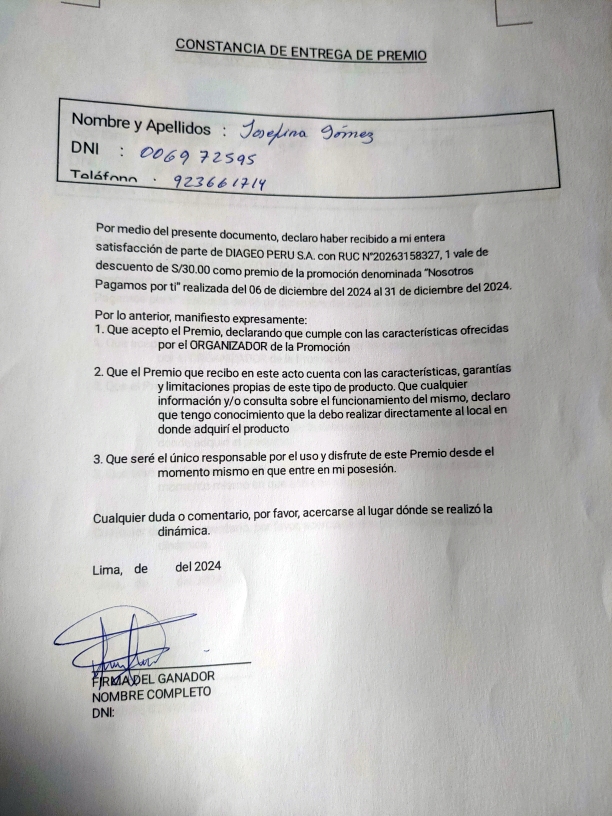 CONSTANCIA DE ENTREGA DE PREMIO
Nombre y Apellidos : Josefina Gómez
DNI : 006972595
Teléfono : 923661714
Por medio del presente documento, declaro haber recibido a mi entera
satisfacción de parte de DIAGEO PERU S.A. con RUC N°20263158327, 1 vale de
descuento de S/30.00 como premio de la promoción denominada "Nosotros
Pagamos por ti" realizada del 06 de diciembre del 2024 al 31 de diciembre del 2024.
Por lo anterior, manifiesto expresamente:
1. Que acepto el Premio, declarando que cumple con las características ofrecidas
por el ORGANIZADOR de la Promoción
2. Que el Premio que recibo en este acto cuenta con las características, garantías
y limitaciones propias de este tipo de producto. Que cualquier
información y/o consulta sobre el funcionamiento del mismo, declaro
que tengo conocimiento que la debo realizar directamente al local en
donde adquirí el producto
3. Que seré el único responsable por el uso y disfrute de este Premio desde el
momento mismo en que entre en mi posesión.
Cualquier duda o comentario, por favor, acercarse al lugar dónde se realizó la
dinámica.
Lima, de del 2024
FIRMA DEL GANADOR
NOMBRE COMPLETO
DNI: